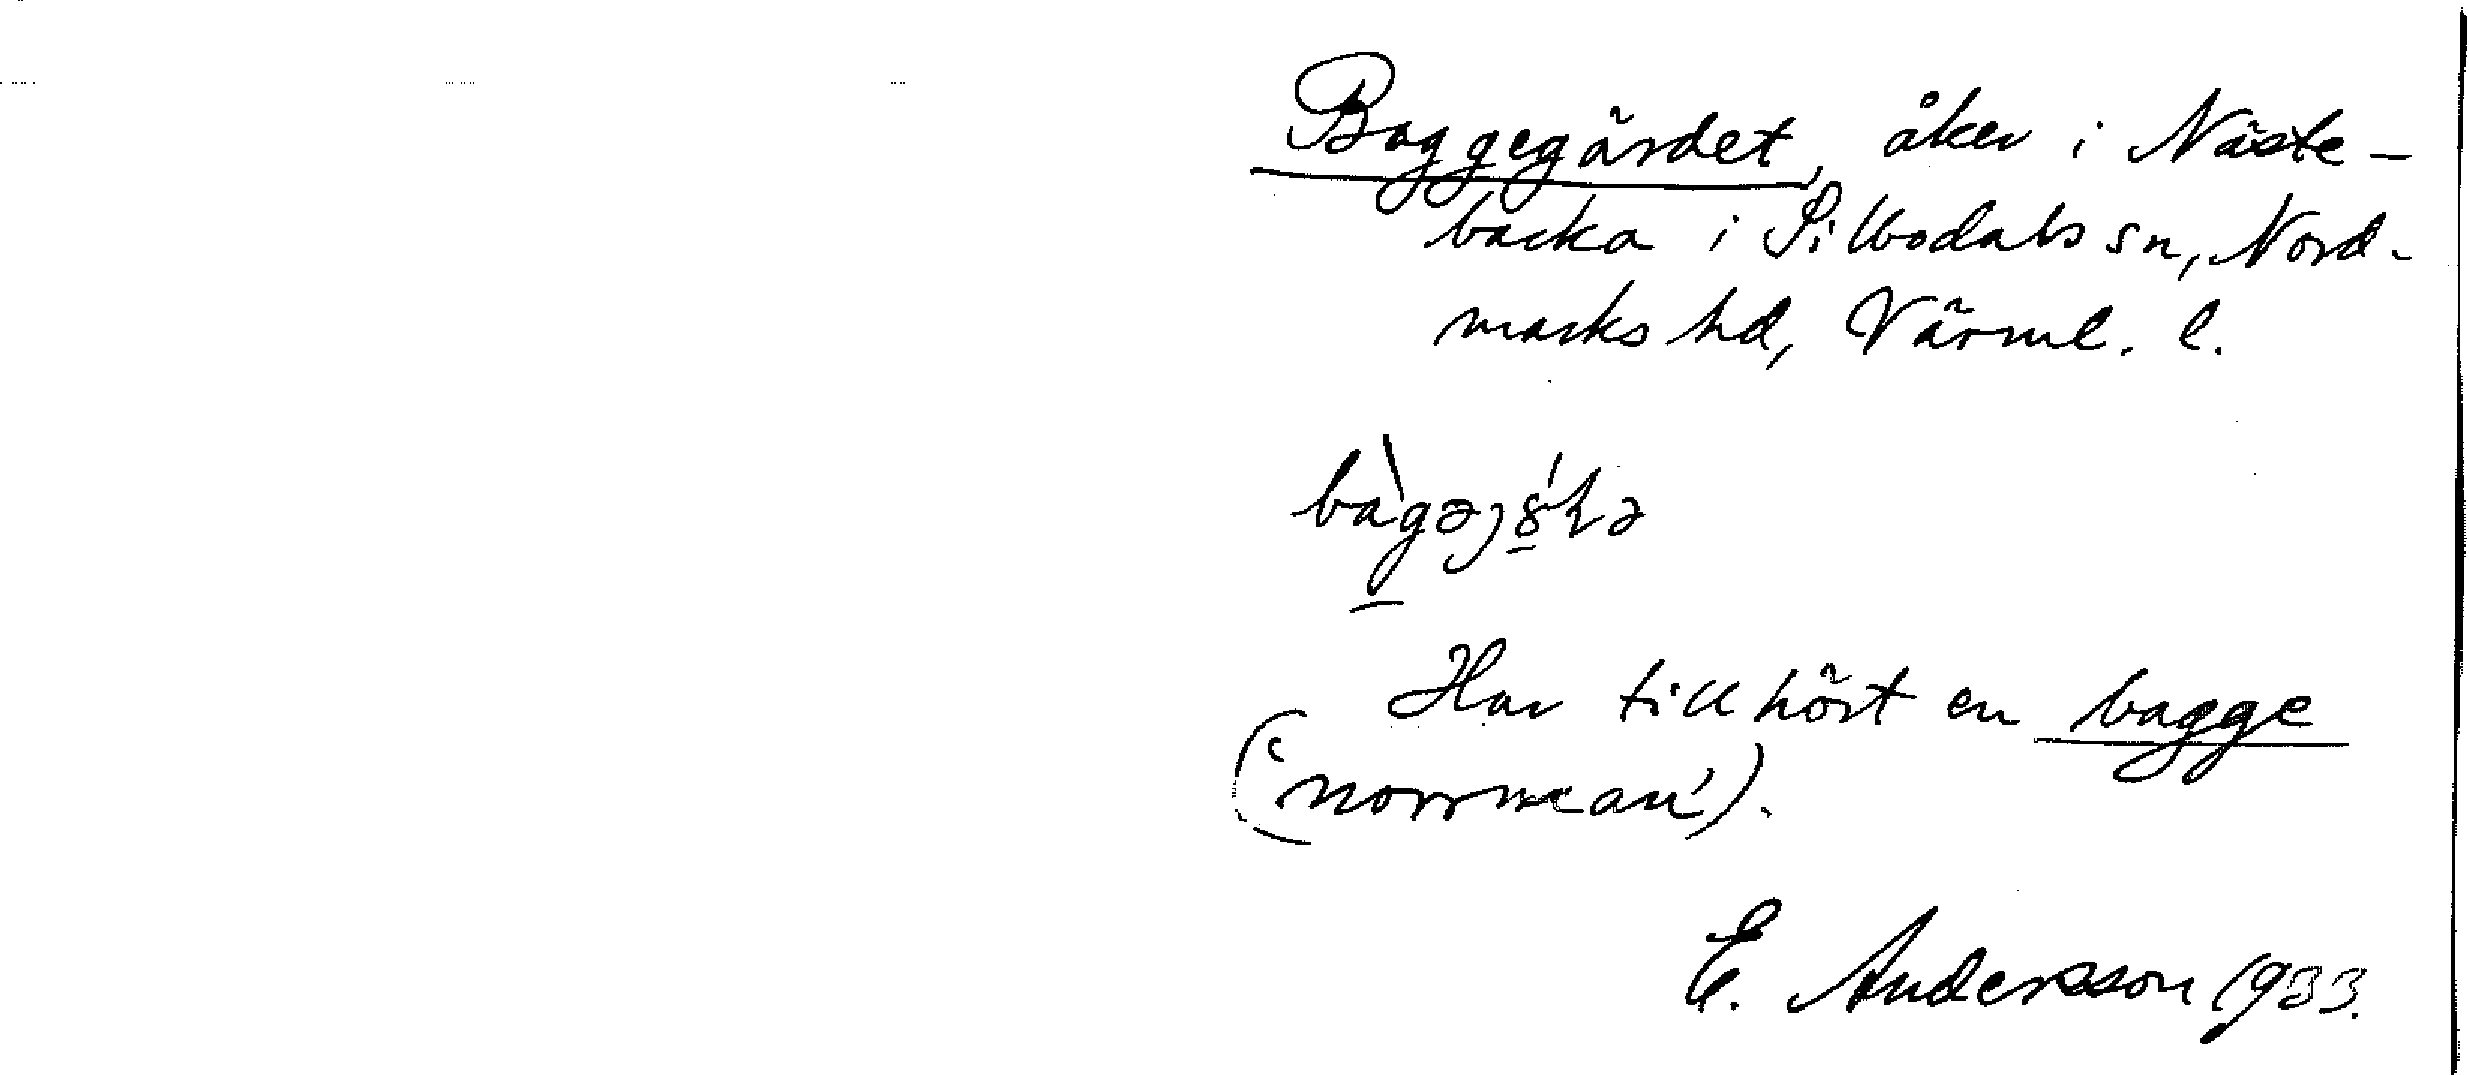 Baggegärdet, åker i Näste-
backa i Silbodals sn, Nord-
marks hd, Värml. l.
Har tillhört en bagge
(‘norrman’).
E. Andersson 1933.